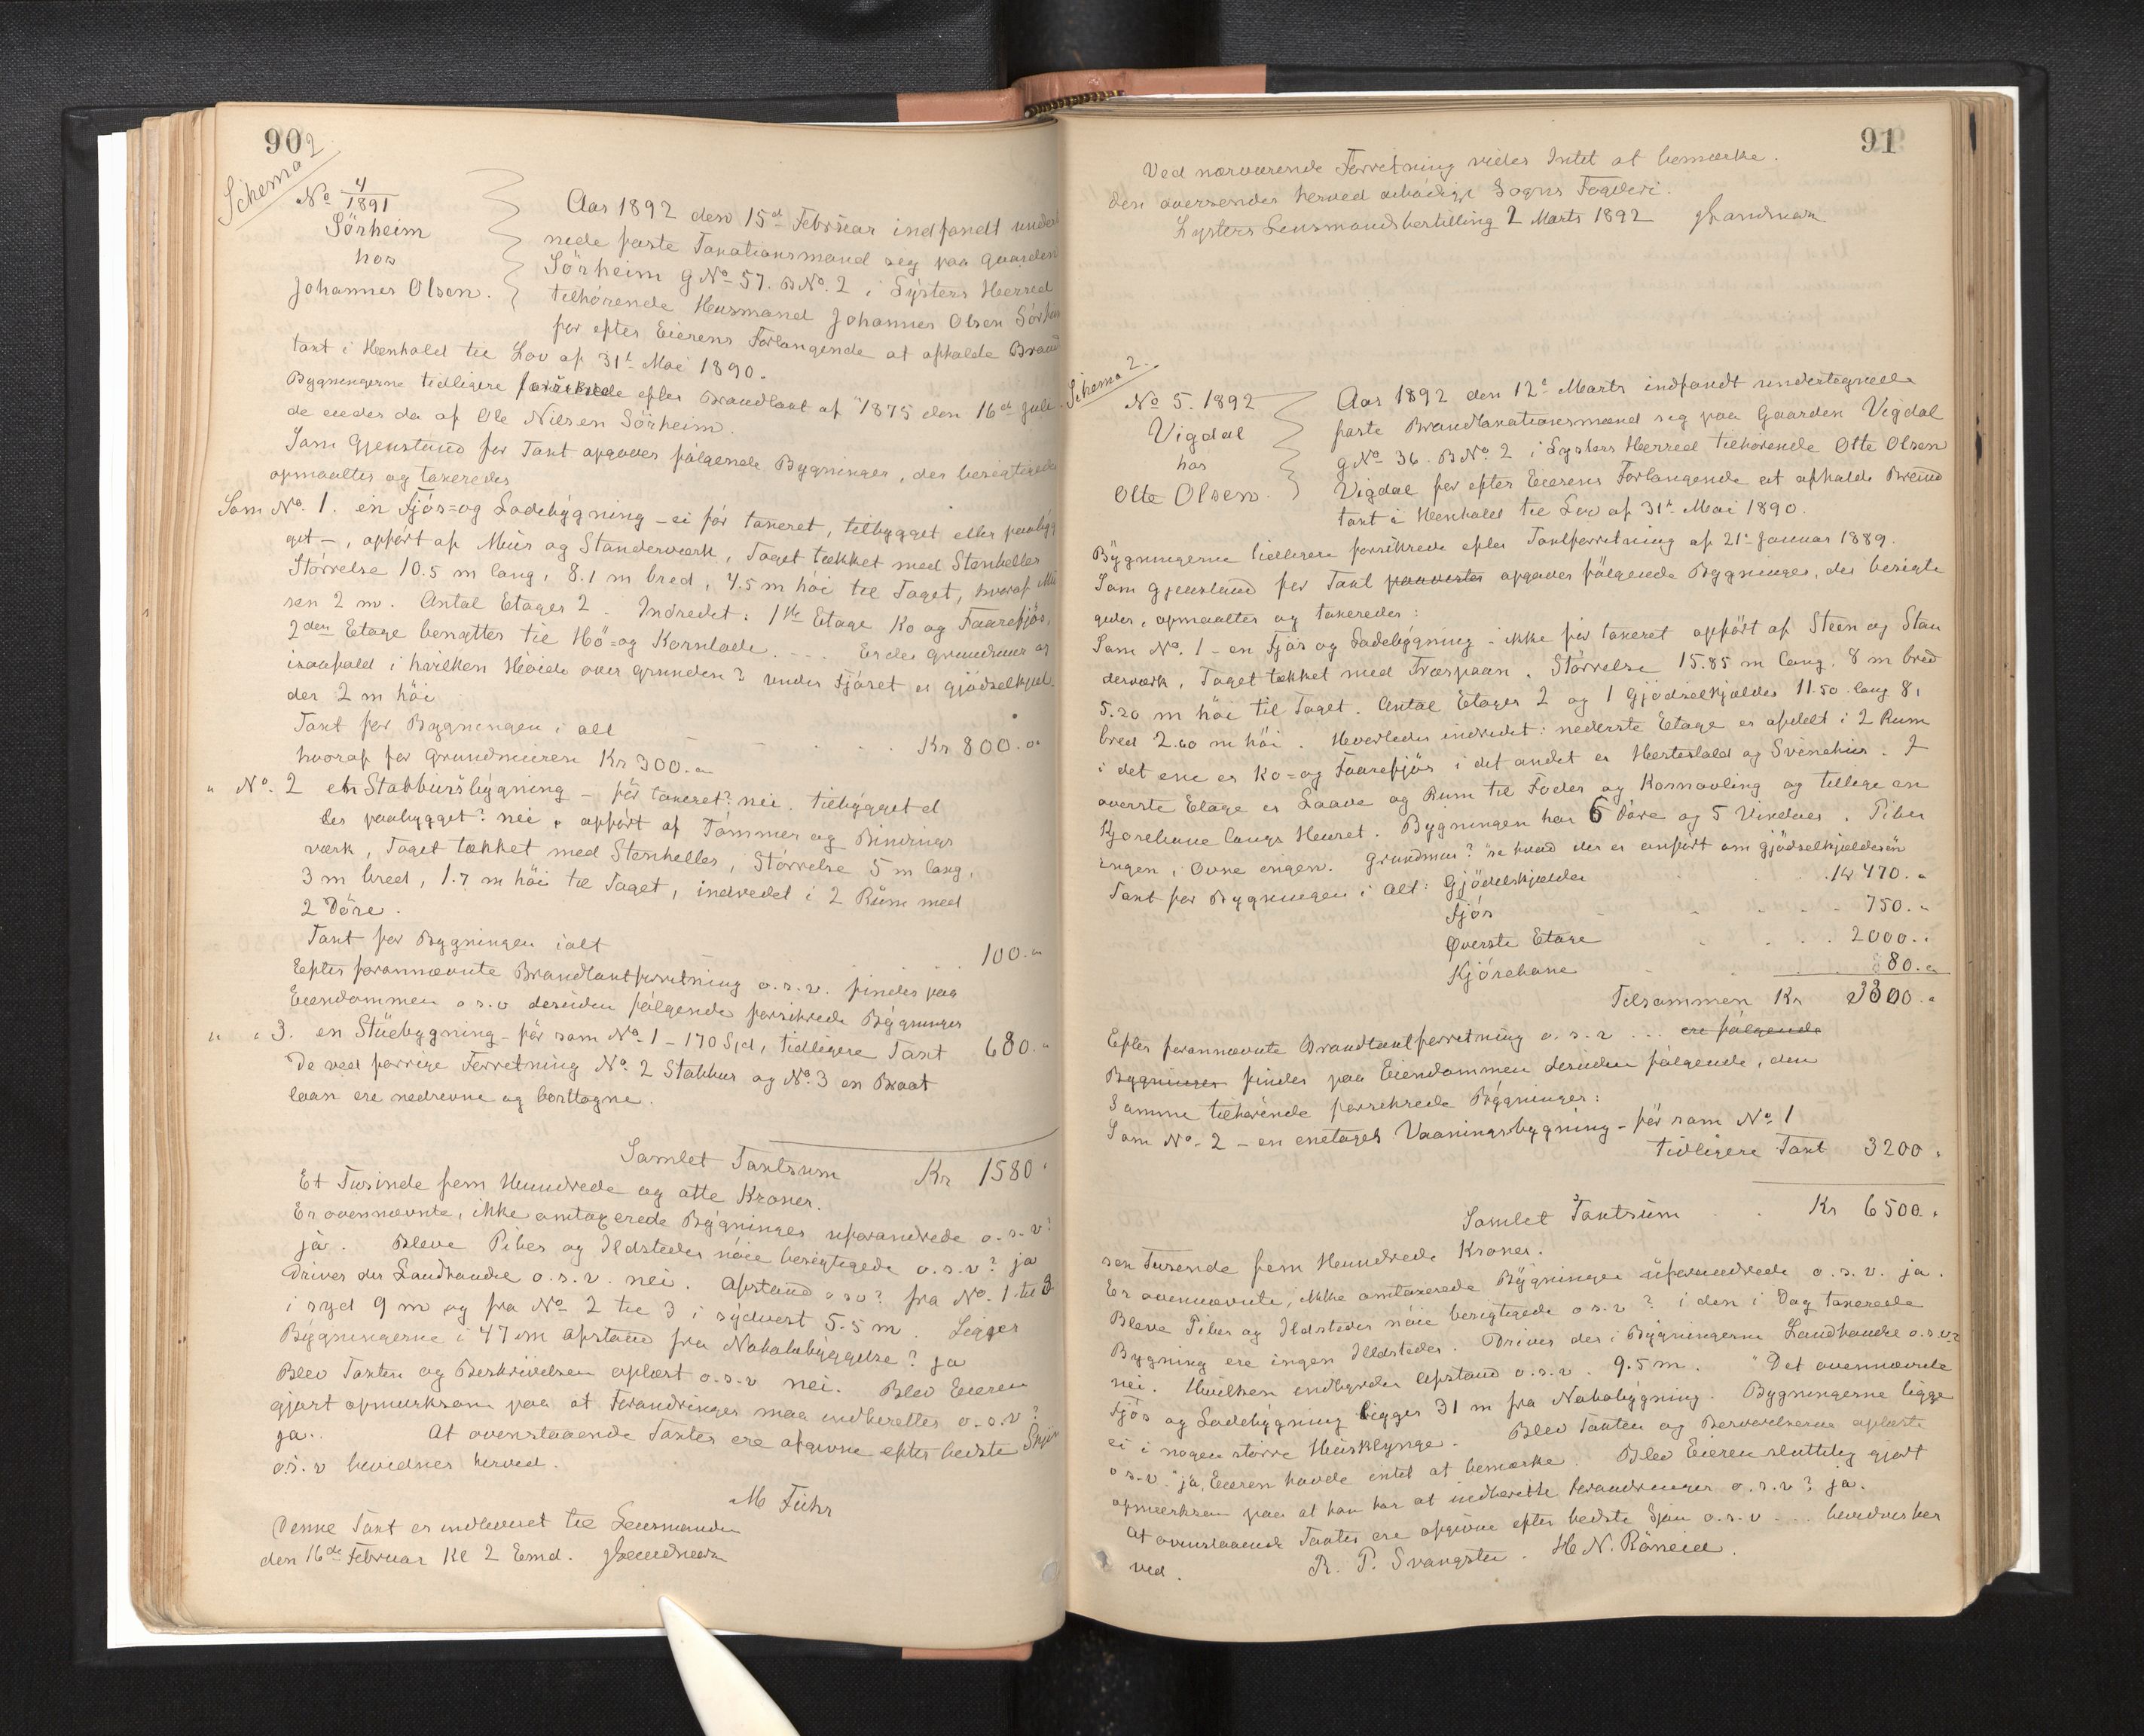 90
Schema 2
No 4/1891
Sörheim
hos
Johannes Olsen.
Aar 1892 den 15d Februar indfandt under
nede faste Taxationsmænd seg paa Gaarden
Sörheim GNo 57. BNo. 2 i Lysters Herred
tilhörende Husmand Johannes Olsen Sörheim
for efter Eierens Forlangende at afholde Brand
taxt i Henhold til Lov af 31t Mai 1890.
Bygningerne tidligere forsikrede efter Brandtaxt af 1875 den 16d Juli
de eiedes da af Ole Nilsen Sörheim.
Som Gjenstand for Taxt opgaves fölgende Bygninger, der besigtigedes
opmaaltes og taxeredes
Som No. 1. en Fjös= og Ladebygning - ei för taxeret, tilbygget eller paabyg
get -, opfört af Muur og Standerværk, Taget tækket med Stenheller
Störrelse 10.5 m lang, 8.1 m bred, 4.5 m höi til Taget, hvoraf Mu
ren 2 m. Antal Etager 2. Indredet: 1ste Etage Ko og Faarefjös,
2den Etage benyttes til Hö= og Kornlade. - - - Er der Grundmur og
isaafald i hvilken Höide over Grunden? under Fjöset er Gjödselkjel
der 2 m höi
Taxt for Bygningen i alt Kr 800. "
hvoraf for Grundmuren Kr 300. "
" No. 2 en Stabbursbygning - för taxeret? nei. tilbygget el
ler paabygget? nei, opfört af Tömmer og Bindings
værk, Taget tækket med Stenheller, Störrelse 5 m lang,
3 m bred, 1.7 m höi til Taget, indredet i 2 Rum med
2 Döre.
Taxt for Bygningen ialt 100. "
Efter forannævnte Brandtaxtforretning o.s.v. findes paa
Eiendommen o s.v desuden fölgende forsikrede Bygninger
" " 3. en Stuebygning - för som No. 1 - 170 Spd, tidligere Taxt 680. "
De ved forrige Forretning No. 2 Stabbur og No. 3 en Braat
laan ere nedrevne og borttagne.
Samlet Taxtsum Kr 1580 "
Et Tusinde fem Hundrede og otte Kroner.
Er ovennævnte, ikke omtaxerede Bygninger uforandrede o.s.v?
ja. Bleve Piber og Ildsteder nöie besigtigede o.s.v? ja
Drives der Landhandel o.s.v. nei. Afstand o s v? fra No. 1 til 3
i syd 9 m og fra No 2 til 3 i sydvest 5.5 m. Ligger
Bygningerne i 47 m Afstand fra Nabobebyggelse? ja
Blev Taxten og Beskrivelsen oplæst o.s.v nei. Blev Eieren
gjort opmærksom paa at Forandringer maa indberettes o.s.v?
ja. At ovenstaaende Taxter ere afgivne efter bedste Skjön
o.s.v bevidnes herved.
M Fuhr
Denne Taxt er indleveret til Lensmanden
den 16de Februar Kl 2 Emd.
91
Ved nærværende Forretning vides Intet at bemærke.
den oversendes herved ærbödigst Sogns Fogderi.
Lysters Lensmandsbestilling 2 Marts 1892
Schema 2.
No 5. 1892
Vigdal
hos
Otte Olsen.
Aar 1892 den 12t Marts indfandt undertegnede
faste Brandtaxationsmænd seg paa Gaarden Vigdal
GNo 36. BNo. 2 i Lysters Herred tilhörende Otte Olsen
Vigdal for efter Eierens Forlangende at afholde Brand
taxt i Henhold til Lov af 31t Mai 1890.
Bygningerne tidligere forsikrede efter Taxtforretning af 21t Januar 1889.
Som Gjenstand for Taxt opgaves fölgende Bygninger, der besigti
gedes, opmaaltes og taxeredes:
Som No. 1 - en Fjös og Ladebygning - ikke för taxeret opfört af Steen og Stan
derværk, Taget tækket med Træspaan. Störrelse 15.85 m lang, 8 m bred
5.20 m höi til Taget. Antal Etager 2 og 1 Gjödselkjelder 11.50 lang 8,
bred 2.60 m höi. Hvorledes indredet: nederste Etage er afdelt i 2 Rum
i det ene er Ko= og Faarefjös i det andet er Hestestald og Svinehus. I
överste Etage er Laave og Rum til Foder og Kornavling og tillige en
Kjörebane langs Huset. Bygningen har 6 Döre og 5 Vinduer. Piber
ingen, Ovne ingen. Grundmur? se hvad der er anfört om gjödselkjelderen
Taxt for Bygningen i Alt: Gjödelskjælder Kr 470. "
Fjös 750. "
Överste Etage 2000. "
Kjörebane 80. "
Tilsammen Kr 3300. "
Efter forannævnte Brandtaxtforretning o.s.v ... ere fölgende
Bygninger findes paa Eiendommen desuden fölgende, den
Samme tilhörende forsikrede Bygninger:
Som No. 2 - en enetages Vaaningsbygning - för som No. 1
tidligere Taxt 3200 "
Samlet Taxtsum Kr 6500. "
sex Tusende fem Hundrede Kroner.
Er ovennævnte, ikke omtaxerede Bygninger uforandrede o.s.v. ja.
Bleve Piber og Ildsteder nöie besigtigede o s.v? i den i Dag taxerede
Bygning ere ingen Ildsteder. Drives der i Bygningerne Landhandel o.s.v?
nei. Hvilken indbyrdes Afstand o.s.v. 9.5 m. Det ovennævnte
Fjös og Ladebygning ligger 31 m fra Nabobygning. Bygningerne ligge
ei i nogen större Husklynge. Blev Taxten og Beskrivelserne oplæste
o s.v. ja, Eieren havde intet at bemærke. Blev Eieren sluttelig gjort
opmærksom paa at han har at indberette Forandringer o.s.v? ja.
At ovenstaaende Taxter ere afgivne efter bedste Skjön o.s.v .... bevidnes her
ved. H N. Röneid.